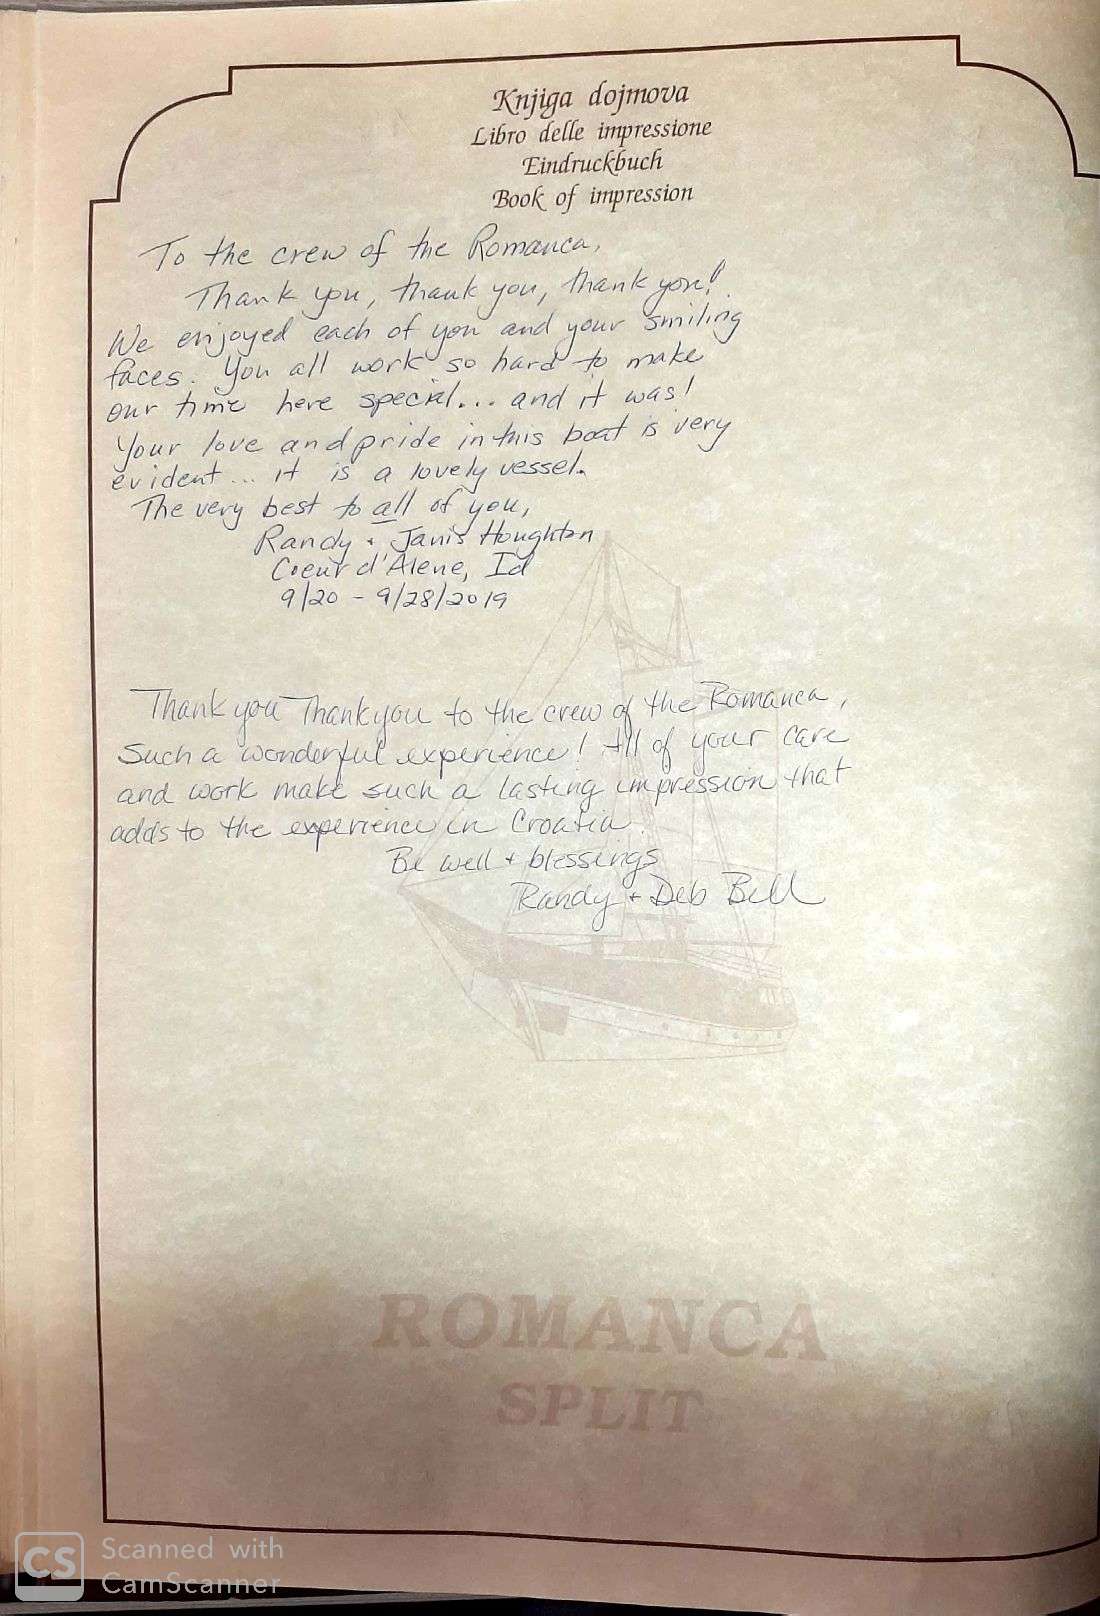 Knjiga dojmova
Libro delle impressione
Eindruckbuch
Book of impression
To the crew of the Romanca,
Thank you, thank you, thank you!
We enjoyed each of you and your smiling
faces. You all work so hard to make
our time here special... and it was!
Your love and pride in this boat is very
evident... it is a lovely vessel.
The very best to all of you,
Randy + Janis Houghton
Coeur d'Alene, Id
9/20 - 9/28/2019
Thank you Thank you to the crew of the Romanca,
Such a wonderful experience! All of your care
and work make such a lasting impression that
adds to the experience in Croatia.
Be well + blessings
Randy + Deb Bell
ROMANCA
SPLIT
CS Scanned with
CamScanner